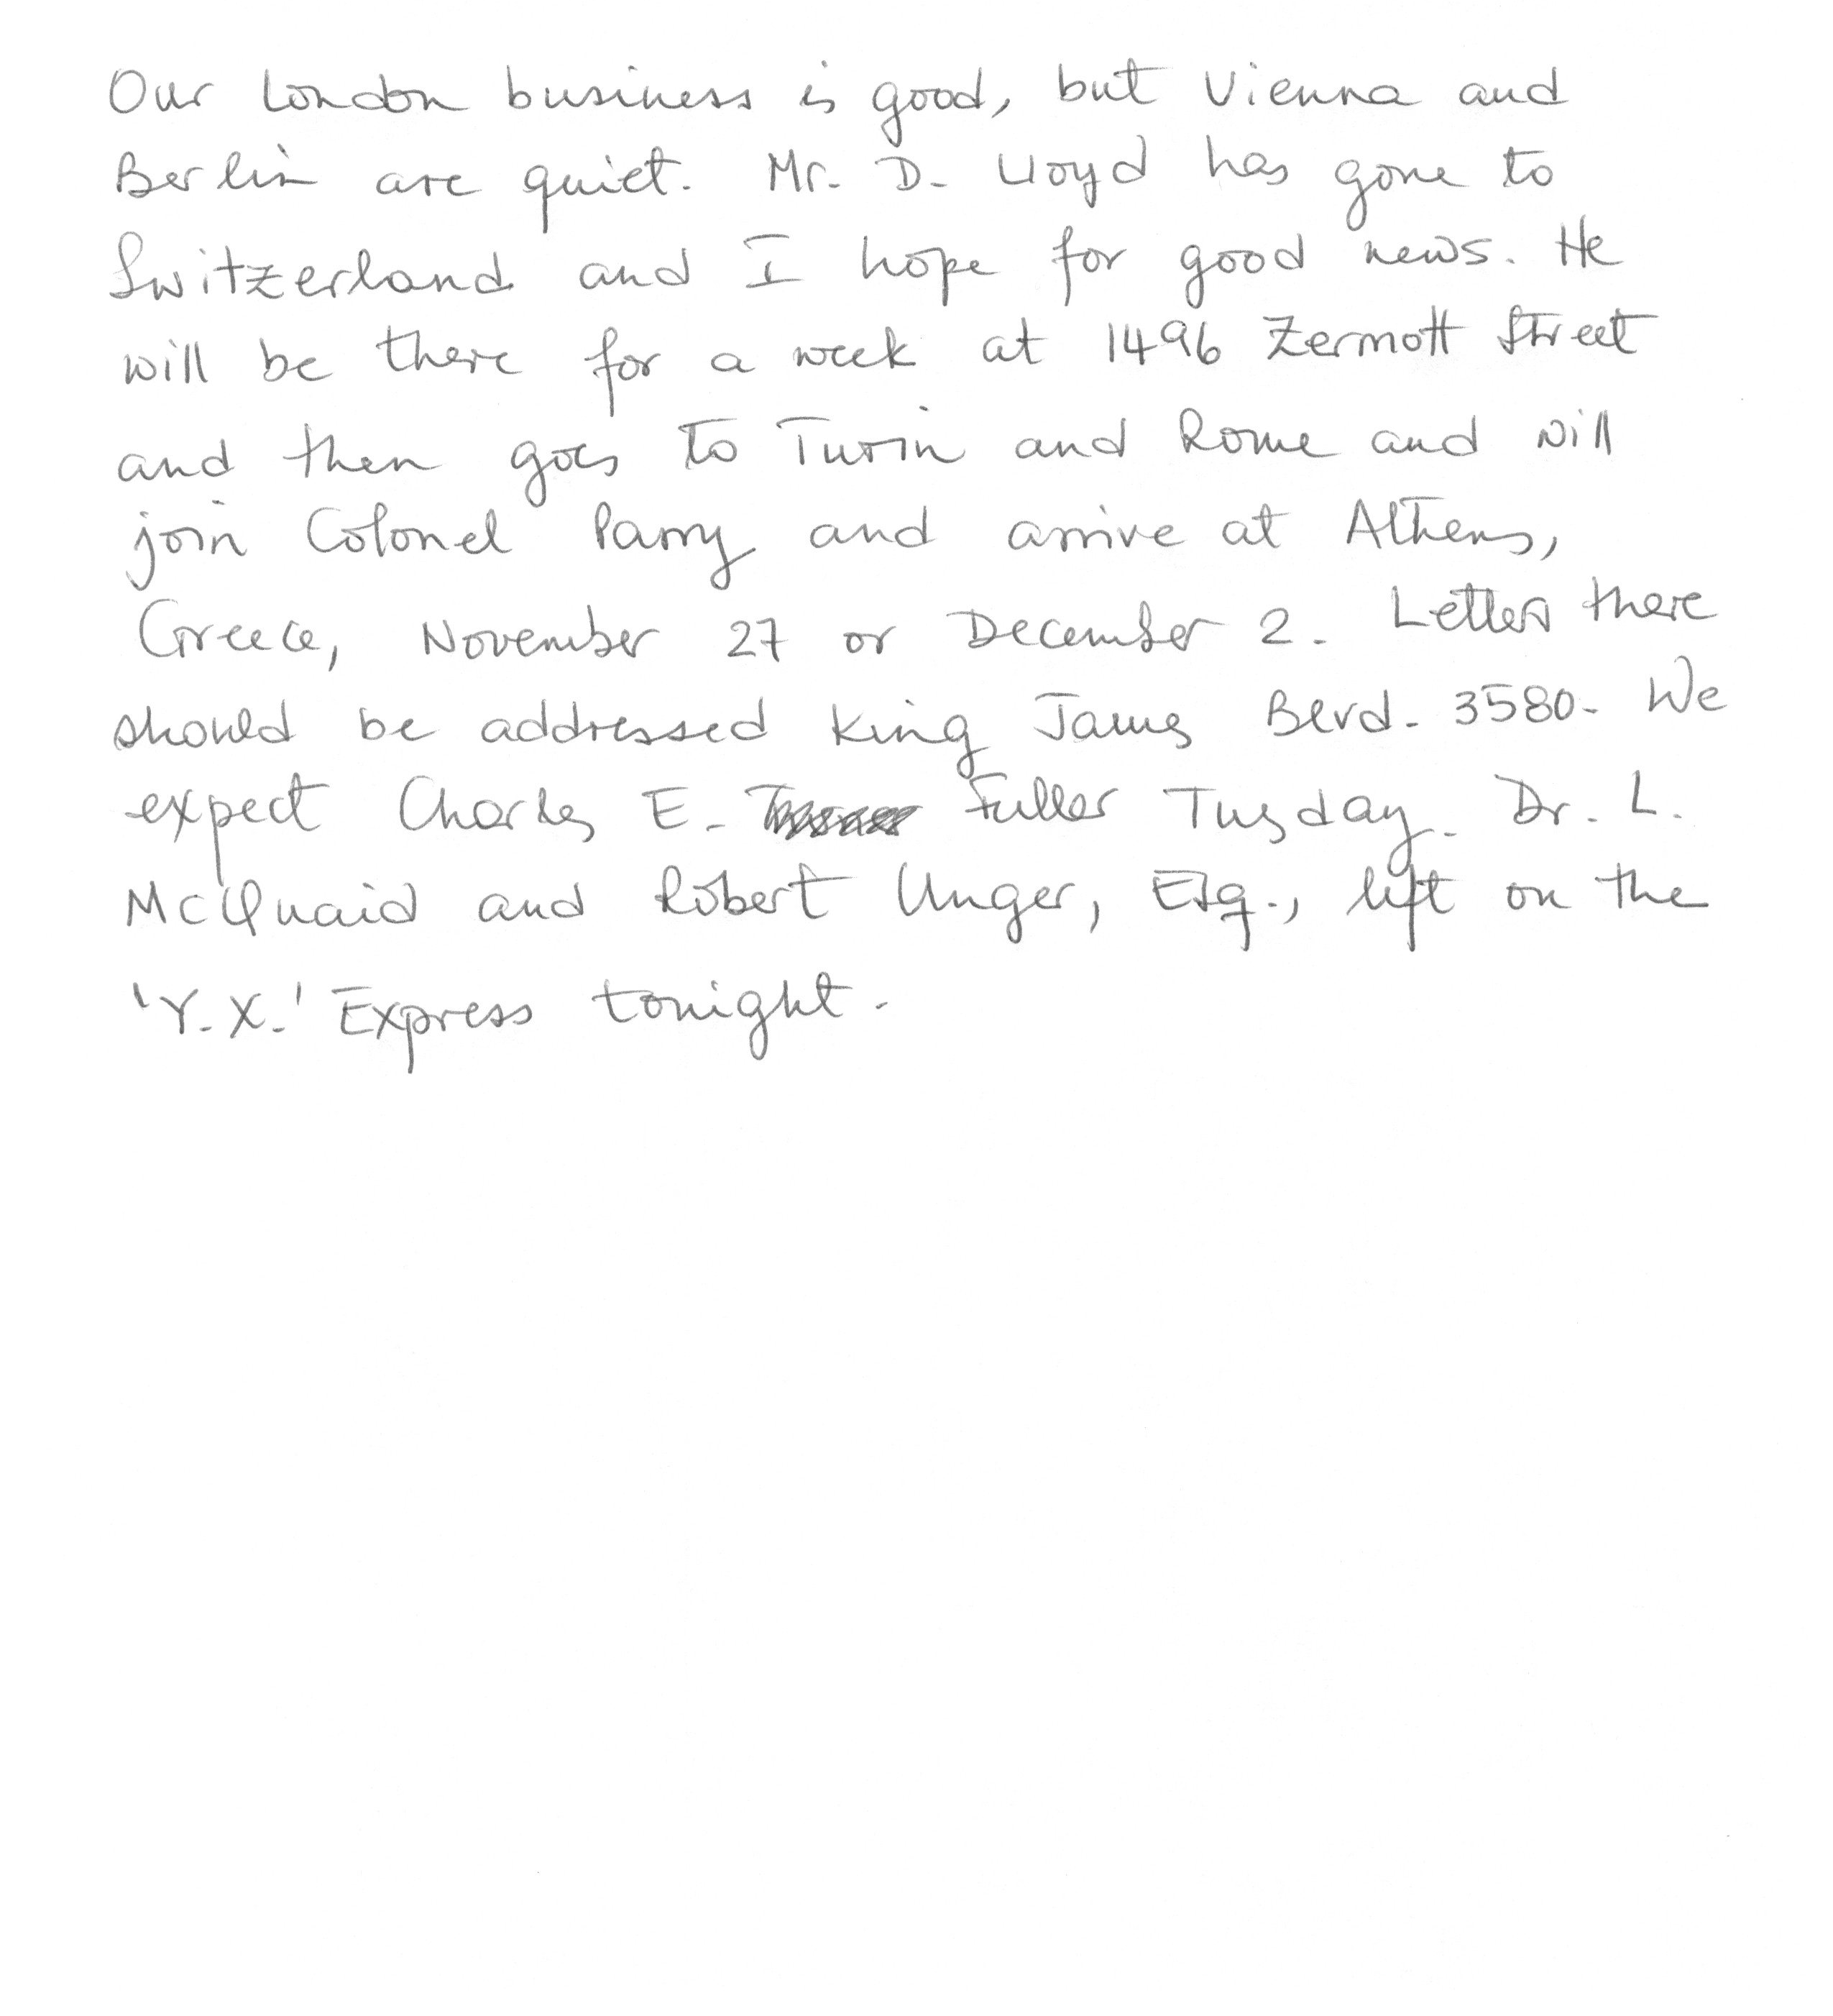 Our London business is good, but Vienna and
Berlin are quiet. Mr. D. Lloyd has gone to
Switzerland and I hope for good news. He
will be there for a week at 1496 Zermott Street
and then goes to Turin and Rome and will
join Colonel Parry and arrive at Athens,
Greece, November 27 or December 2. Letters there
should be addressed King James Blvd. 3580. We
expect Charles E. Fuller Tusday. Dr. L.
McQuaid and Robert Unger, Esq., left on the
'Y.X.' Express tonight.